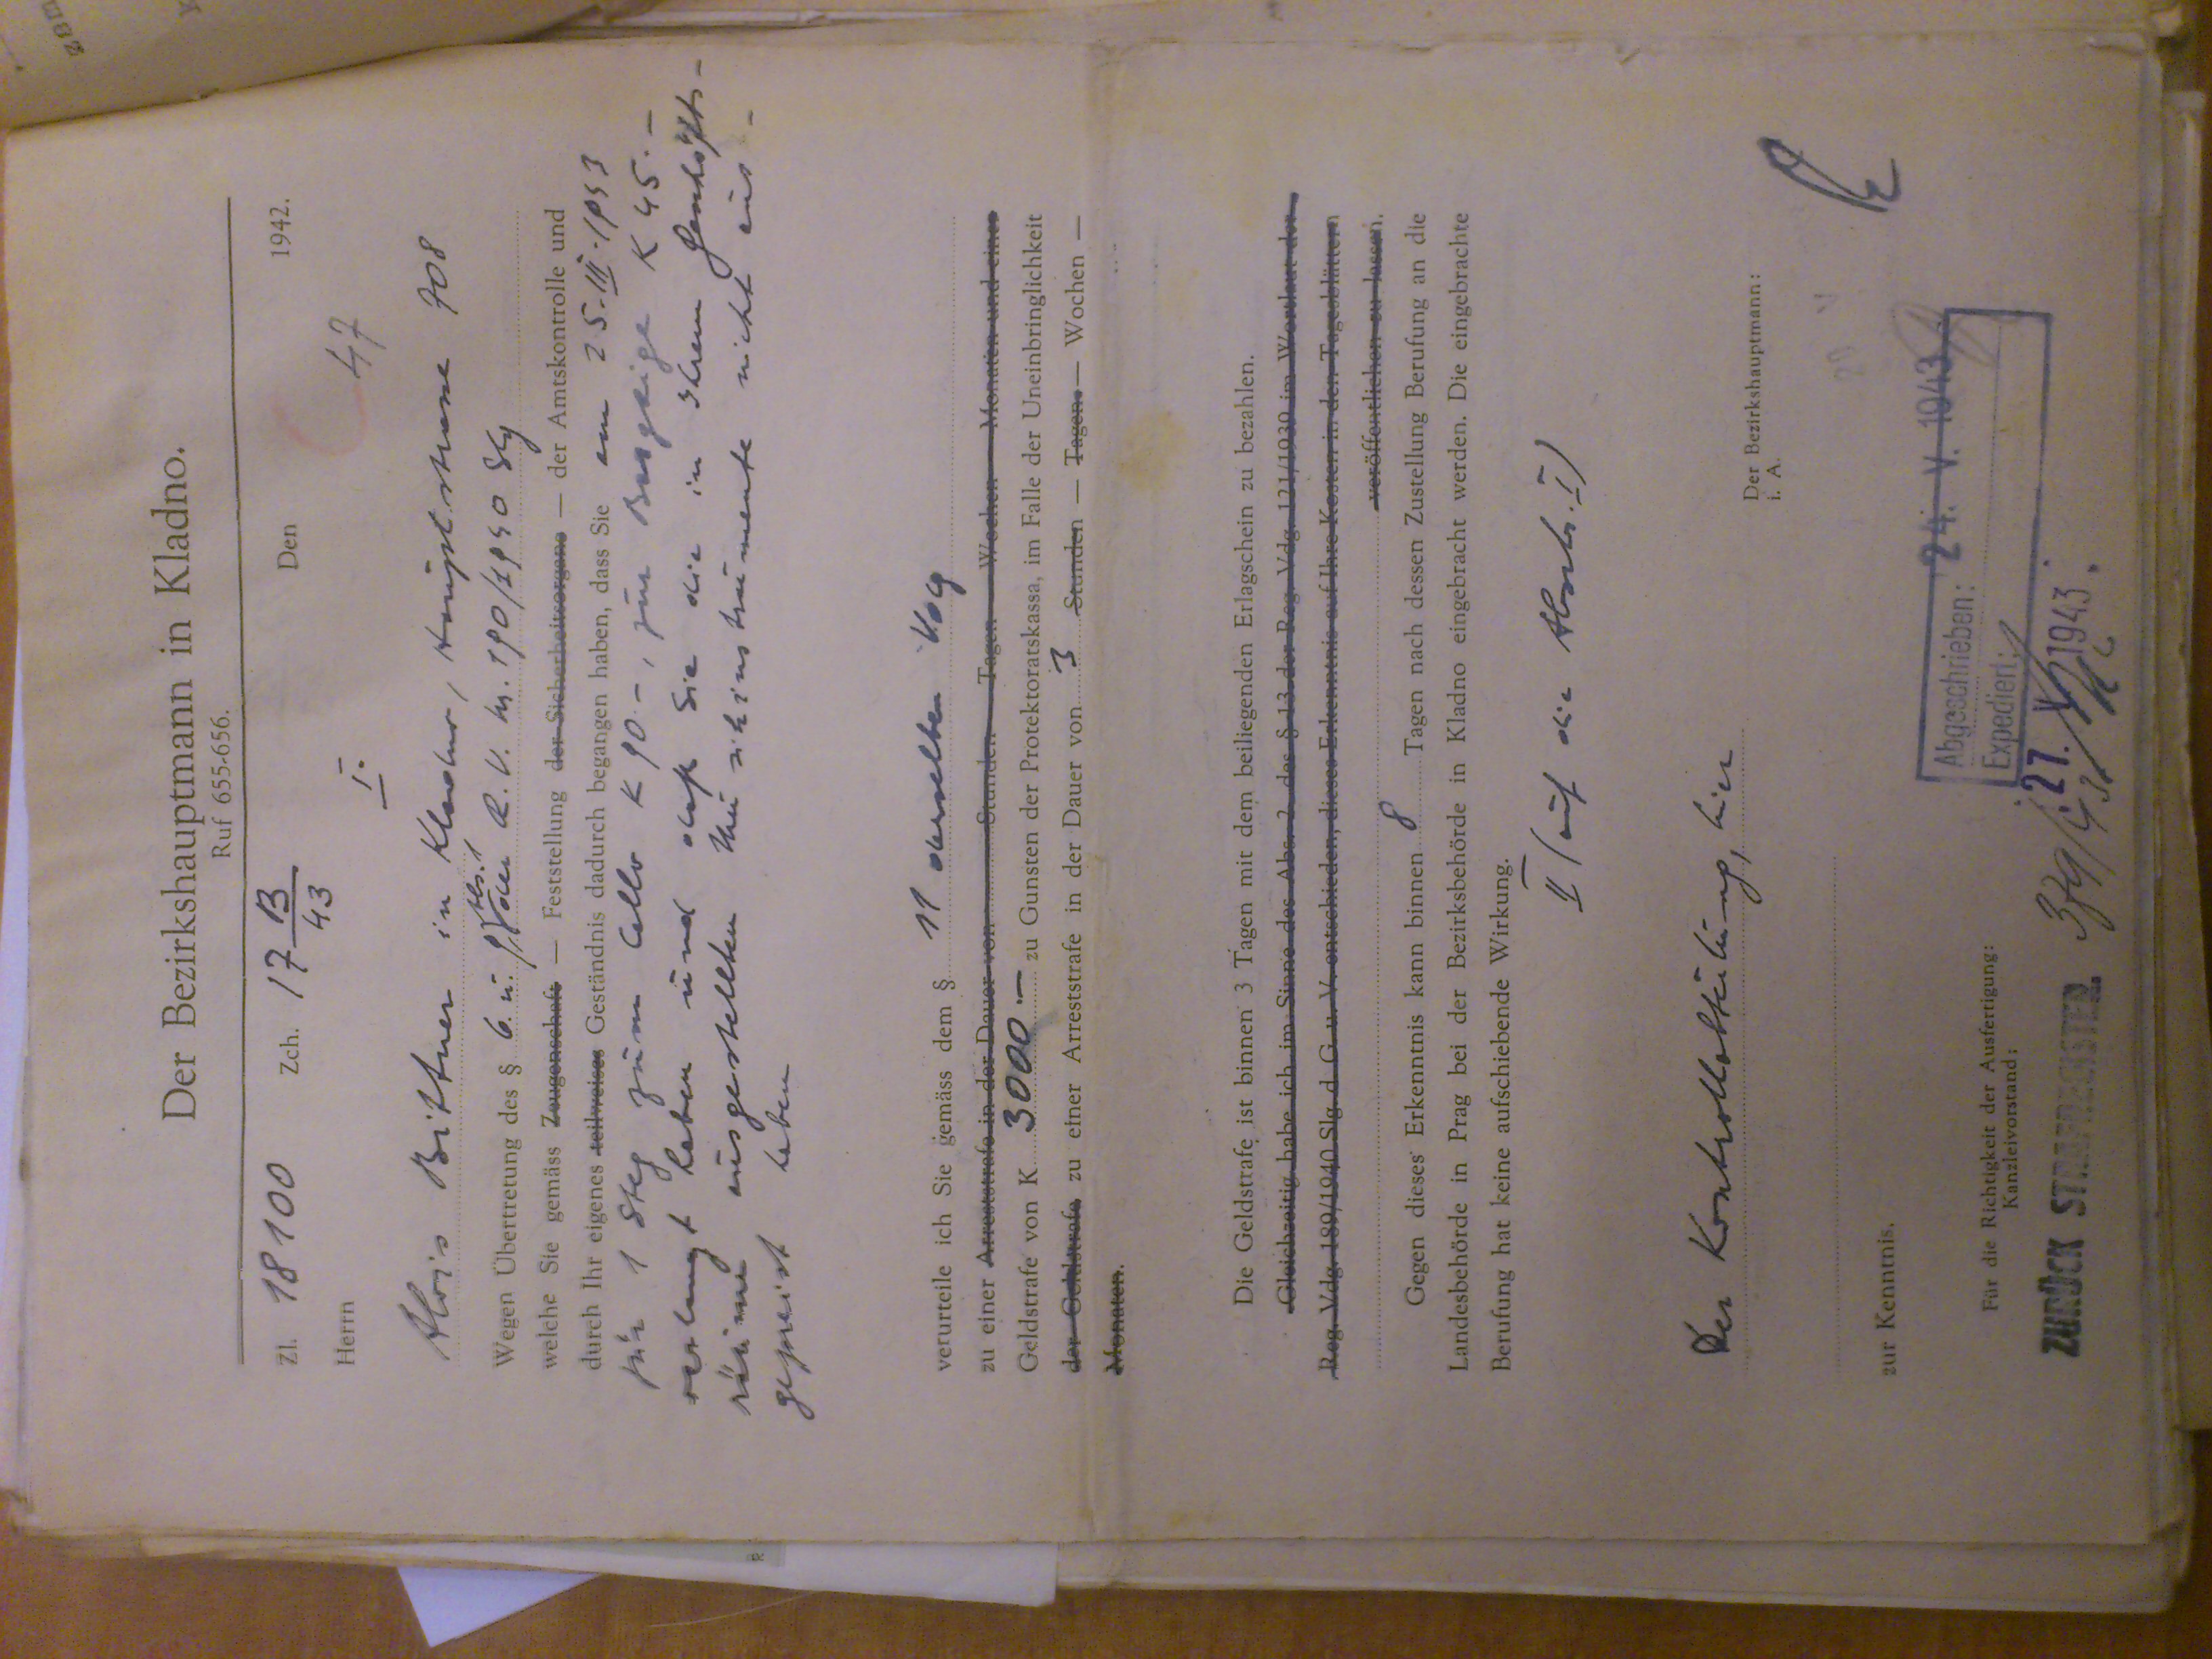 Der Bezirkshauptmann in Kladno.
Ruf 655-656.
Zl. 18100 Zch. 17 B/43 Den 1942.
Herrn
I. 47
Alois Bittner in Kladno, Hauptstrasse 708
Abs. 1
Wegen Übertretung des § 6. u. 9, der R. V. Nr. 190/1940 Slg
welche Sie gemäss Zeugenschaft — Feststellung der Sicherheitsorgane — der Amtskontrolle und
durch Ihr eigenes teilweises Geständnis dadurch begangen haben, dass Sie am 25.III.1943
für 1 Steg zum Cello K 90.-, zur Bassgeige K 45.-
verlangt haben und daß Sie die in Ihrem Geschäfts-
raume ausgestellten Musikinstrumente nicht aus-
gepreist haben
verurteile ich Sie gemäss dem § 11 derselben Vdg
zu einer Arreststrafe in der Dauer von Stunden Tagen Wochen Monaten und einer
Geldstrafe von K 3000.- zu Gunsten der Protektoratskassa, im Falle der Uneinbringlichkeit
der Geldstrafe zu einer Arreststrafe in der Dauer von 3 Stunden — Tagen — Wochen —
Monaten.
Die Geldstrafe ist binnen 3 Tagen mit dem beiliegenden Erlagschein zu bezahlen.
Gleichzeitig habe ich im Sinne des Abs. 2. des § 13 der Reg. Vdg. 121/1939 im Wortlaut der
Reg. Vdg. 189/1940 Slg. d. G. u. V. entschieden, dieses Erkenntnis auf Ihre Kosten in den Tagesblättern
veröffentlichen zu lassen.
Gegen dieses Erkenntnis kann binnen 8 Tagen nach dessen Zustellung Berufung an die
Landesbehörde in Prag bei der Bezirksbehörde in Kladno eingebracht werden. Die eingebrachte
Berufung hat keine aufschiebende Wirkung.
II (auf die Abschr. I)
Der Kontrollabteilung, hier
Der Bezirkshauptmann:
i. A.
zur Kenntnis.
Abgeschrieben: 24. V. 1943
Expediert:
27. V. 1943
Für die Richtigkeit der Ausfertigung:
Kanzleivorstand:
ZURÜCK STRAFREGISTER. 379/43